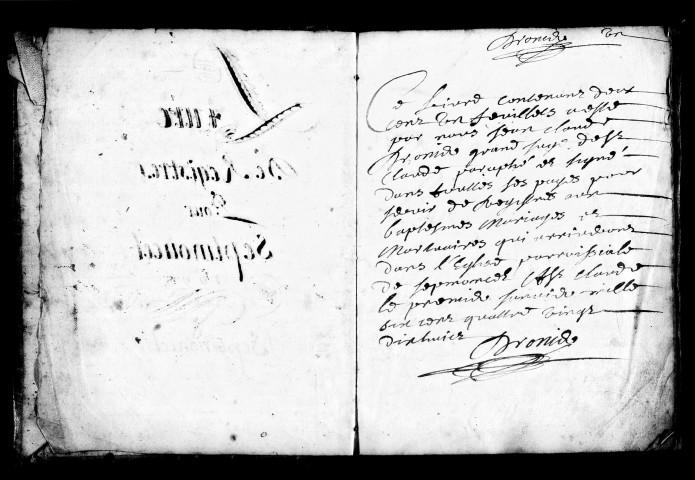 Livre
De Registres
Pour
Septmoncel
Dronier un
Ce Livre contenant deux
cent un feuillets a esté
par nous Jean Claude
Dronier grand juge de St
Claude paraphé et signé
dans toutes ses pages pour
servir de Registres aux
baptesmes Mariages et
Mortuaires qui arriveront
dans l'Eglise parroissiale
de septmoncel a St Claude
le premier janvier mille
six cent quattre vingt
dixhuict Dronier